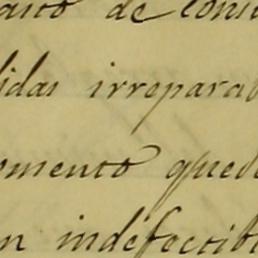 de consi
idas irrepara
omento qued
n indefectib